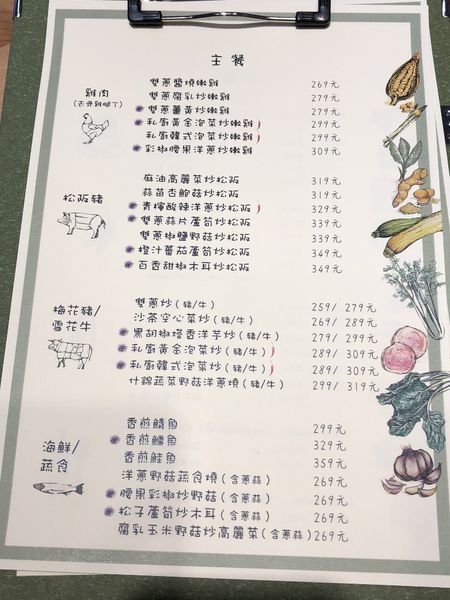 主餐
雞肉
(去骨雞腿丁)
雙蔥醬燒嫩雞 269元
雙蔥腐乳炒嫩雞 279元
雙蔥薑黃炒嫩雞 279元
私廚黃金泡菜炒嫩雞 299元
私廚韓式泡菜炒嫩雞 299元
彩椒腰果洋蔥炒嫩雞 309元
松阪豬
麻油高麗菜炒松阪 319元
蒜苗杏鮑菇炒松阪 319元
青檸酸辣洋蔥炒松阪 329元
雙蔥蒜片蘆筍炒松阪 339元
雙蔥椒鹽野菇炒松阪 339元
橙汁蕃茄蘆筍炒松阪 349元
百香甜椒木耳炒松阪 349元
梅花豬/
雪花牛
雙蔥炒(豬/牛) 259/ 279元
沙茶空心菜炒(豬/牛) 269/ 289元
黑胡椒塔香洋芋炒(豬/牛) 279/ 299元
私廚黃金泡菜炒(豬/牛) 289/ 309元
私廚韓式泡菜炒(豬/牛) 289/ 309元
什錦蔬菜野菇洋蔥燒(豬/牛) 299/ 319元
海鮮/
蔬食
香煎鯖魚 299元
香煎鱸魚 329元
香煎鮭魚 359元
洋蔥野菇蔬食燒(含蔥蒜) 269元
腰果彩椒炒野菇(含蔥蒜) 269元
松子蘆筍炒木耳(含蔥蒜) 269元
腐乳玉米野菇炒高麗菜(含蔥蒜)269元